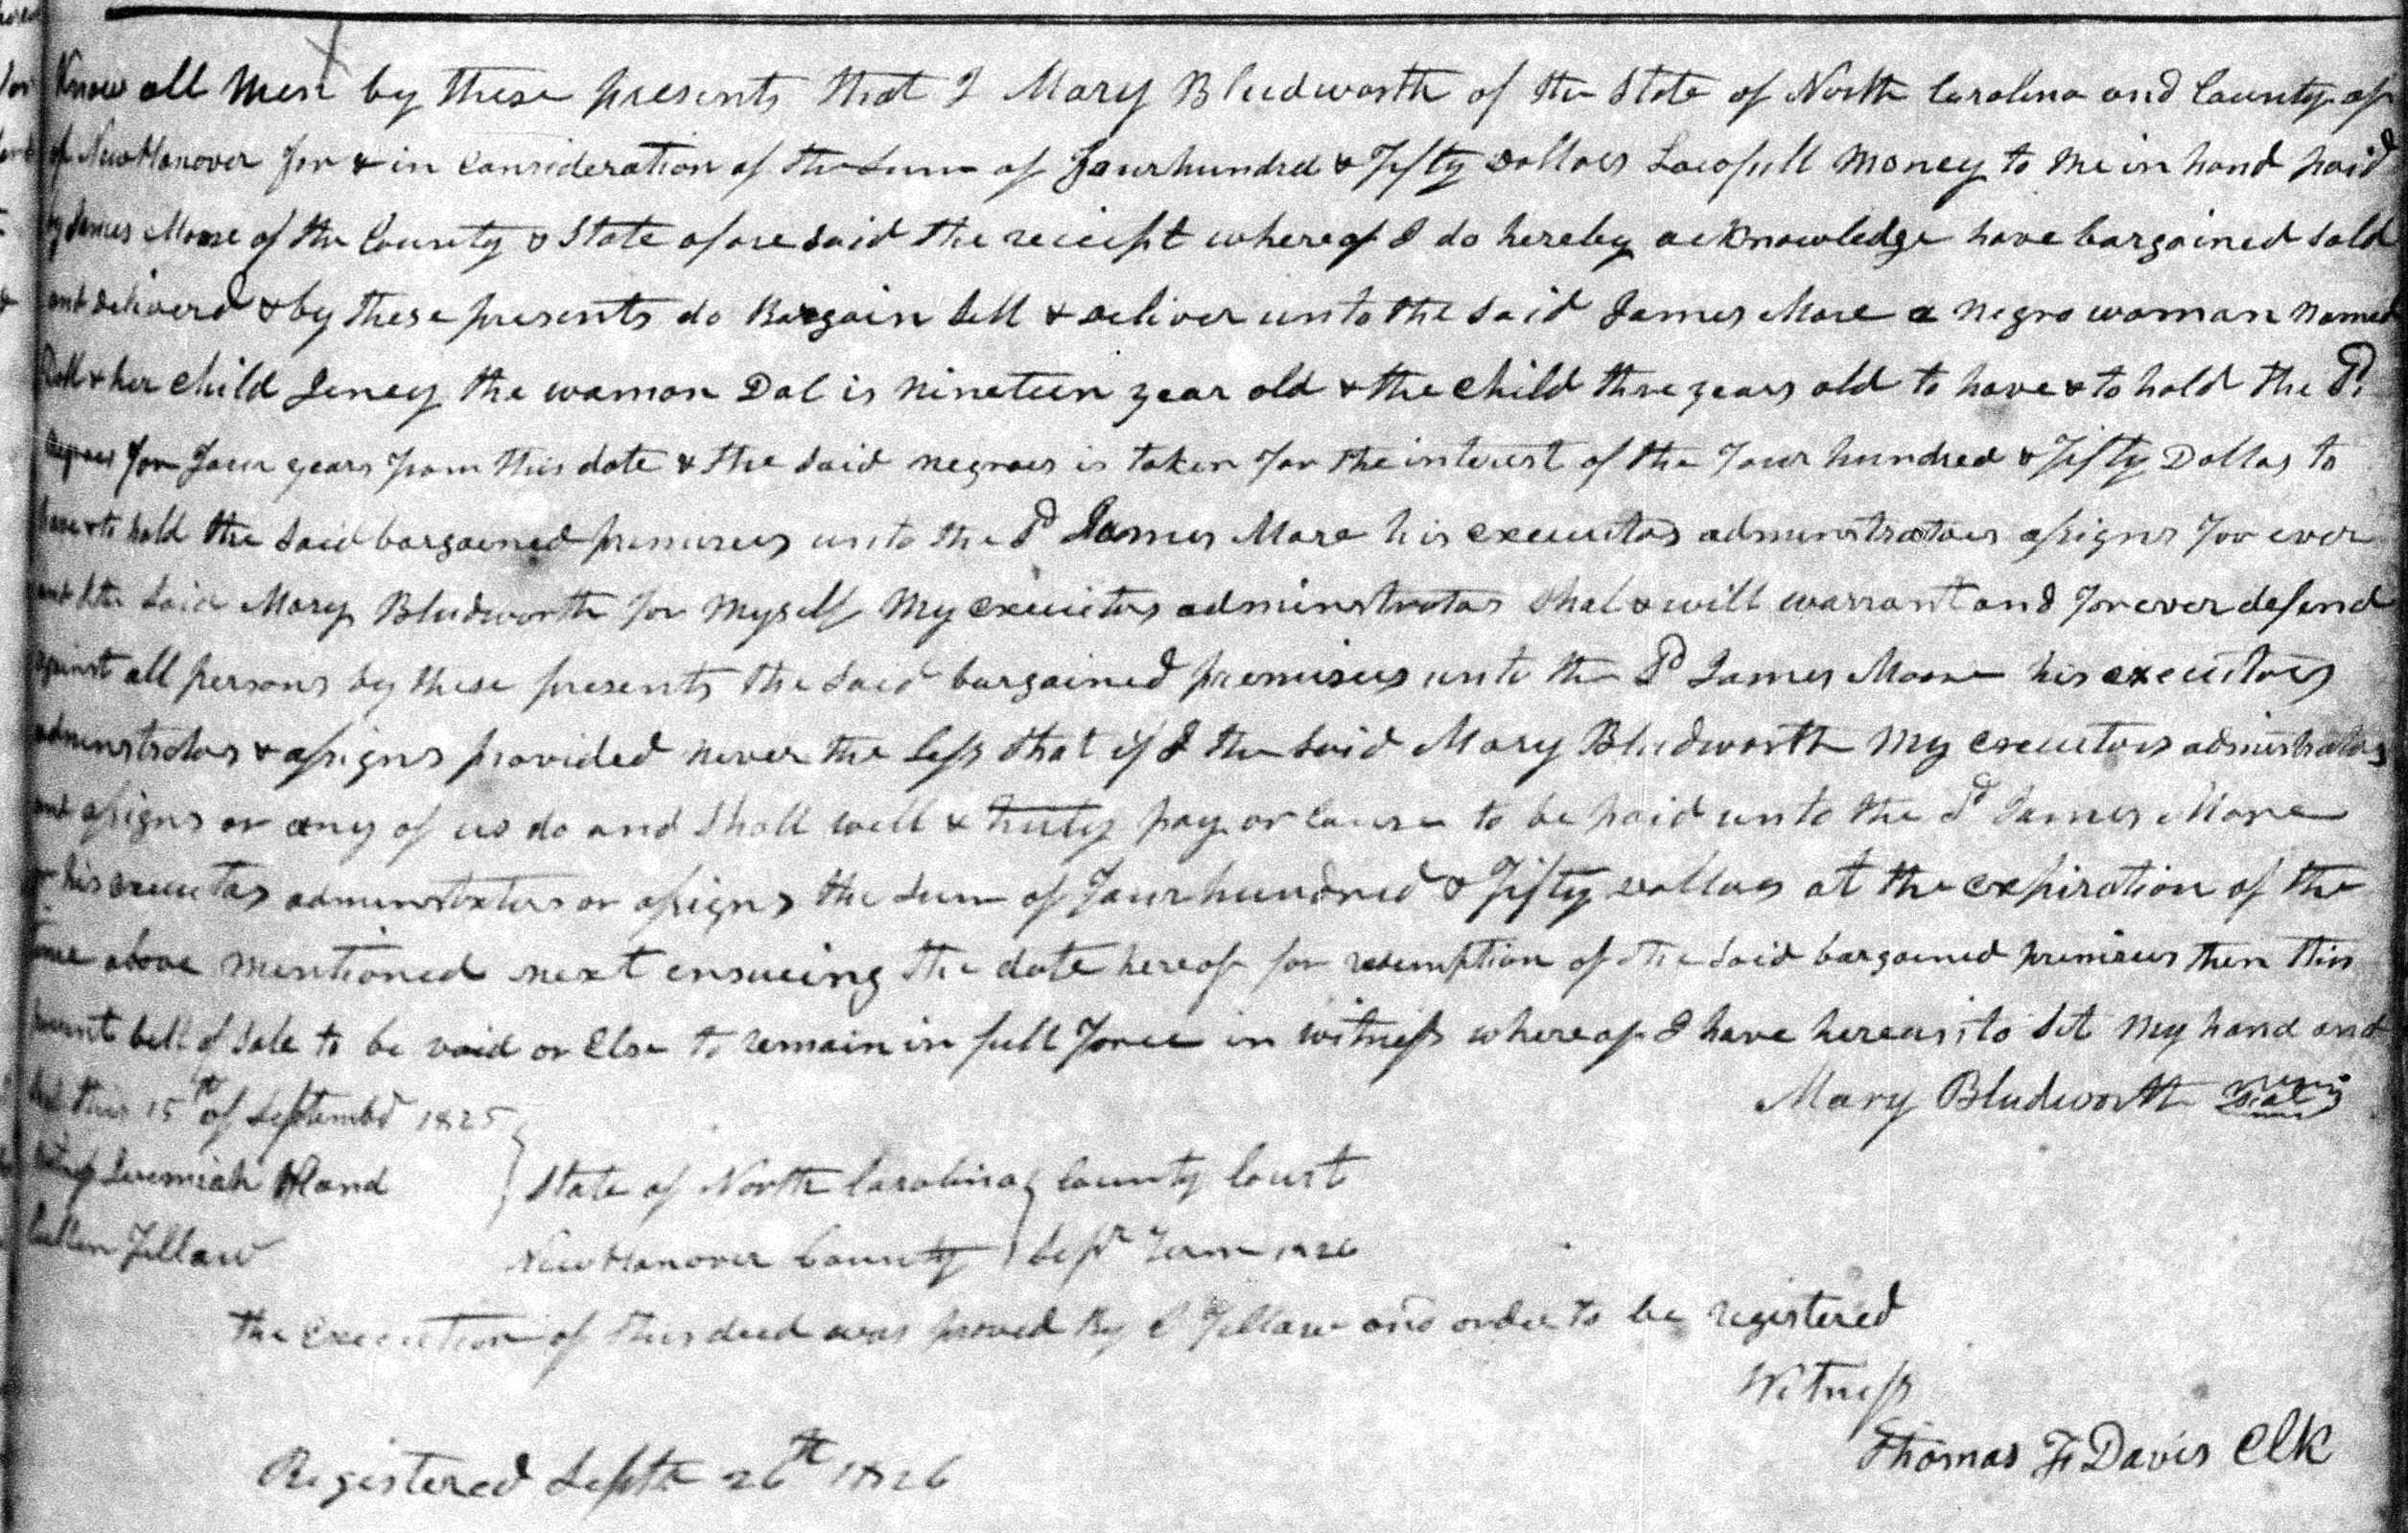 Know all Men by these presents that I Mary Bludworth of the State of North Carolina and County of
of NewHanover for & in Consideration of the Sum of Fourhundred & Fifty Dollars Lawfull Money to me in hand paid
by James Moore of the County & State afore said the receipt whereof I do hereby acknowledge have bargained sold
and deliverd & by these presents do Bargain Sell & deliver unto the said James More a negro woman named
Doll & her child Jeney the woman Dol is nineteen year old & the child thre years old to have & to hold the Sd
negroes for four years from this date & the said negroes is taken for the interest of the four hundred & Fifty Dollas to
have & to hold the said bargained premeses unto the Sd James More his executors adminstrators assigns for ever
and I the said Mary Bludworth for Myself My executors adminstrators Shal & will warrant and forever defend
against all persons by these presents the said bargained premises unto the Sd James Moore his executors
adminstrators & assigns provided never the less that if I the said Mary Bludworth My executors administrators
and assigns or any of us do and Shall well & truly pay or cause to be paid unto the Sd James More
or his executors adminstrators or assigns the Sum of Fourhundred & Fifty dollars at the expiration of the
time above mentioned next ensueing the date hereof for redemption of the said bargained premises then this
present bell of Sale to be void or Else to remain in full force in witness whereof I have hereunto Set My hand and
Seal this 15th of Septembr 1825 Mary Bludworth Seal
Witness Jeremiah Hand State of North Carolina County Court
Cullen Fillaw NewHanover County Sepr Term 1826
the Execution of this deed was proved By C Fillaw and order to be registered
Witness
Thomas F Davis Clk
Registered Septr 26th 1826